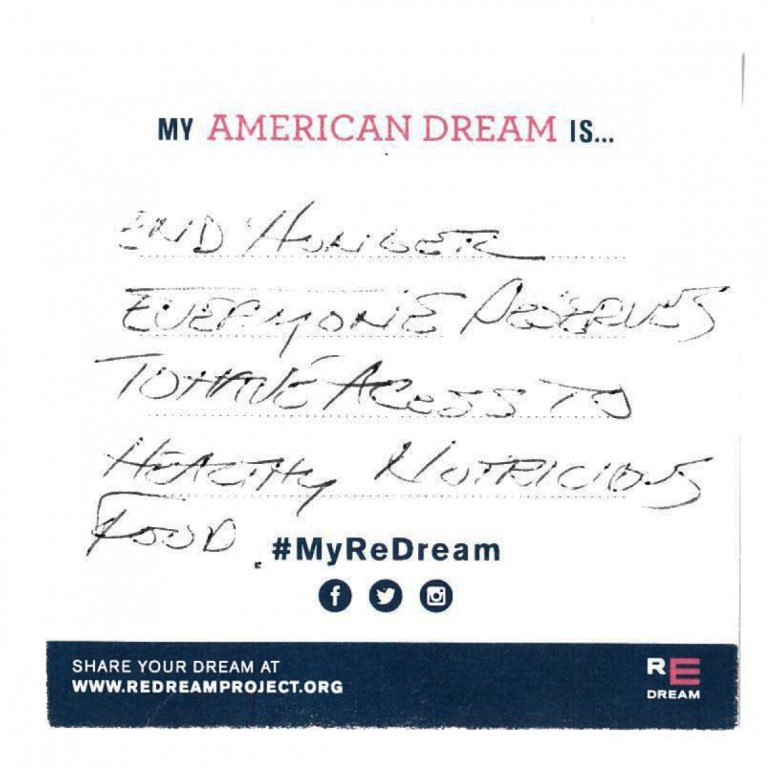 MY AMERICAN DREAM IS...
END HUNGER
EVERYONE DESERVES
TO HAVE ACESS TO
HEALTHY NUTRICIOUS
FOOD.
#MyReDream
SHARE YOUR DREAM AT
WWW.REDREAMPROJECT.ORG
RE
DREAM